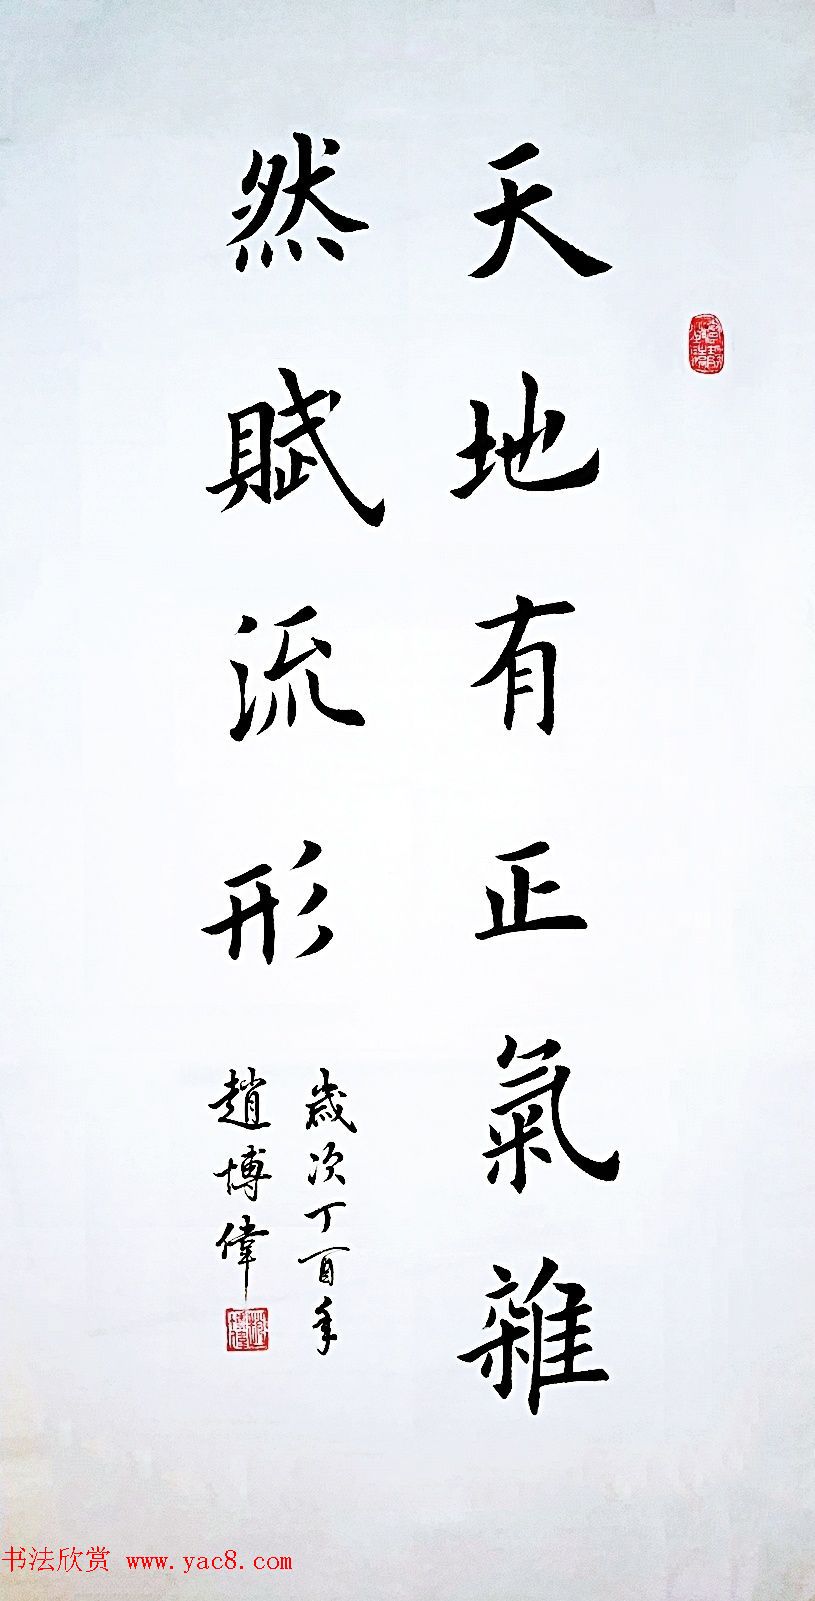 天地有正氣雜
然賦流形
歲次丁酉年
趙博偉
书法欣赏 www.yac8.com